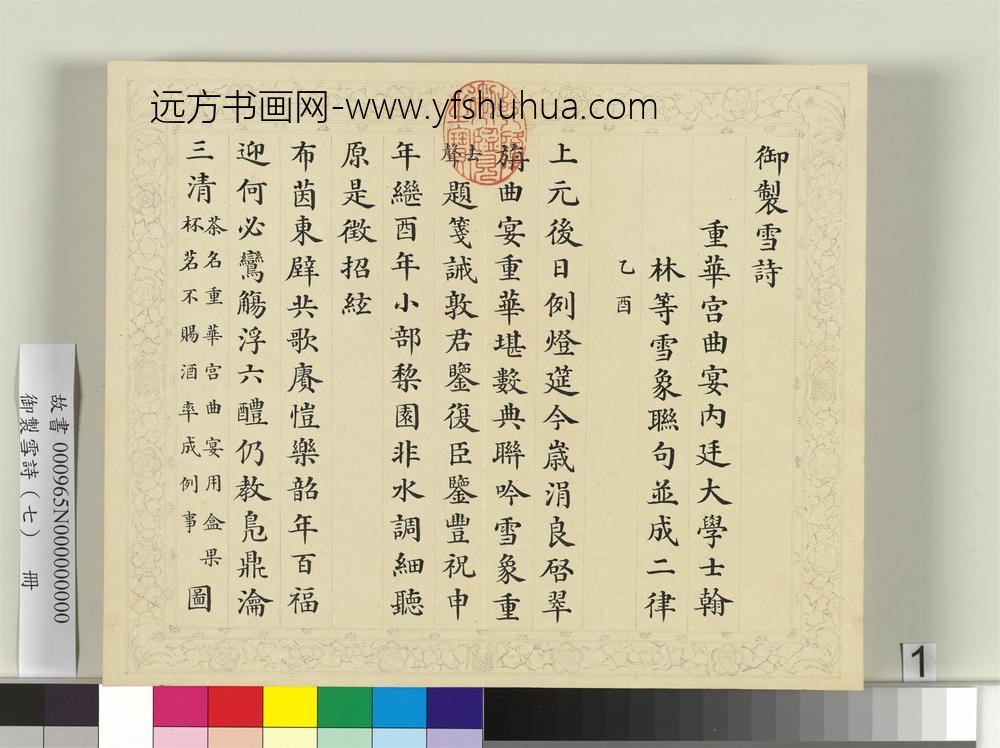 远方书画网-www.yfshuhua.com
御製雪詩
重華宫曲宴内廷大學士翰
林等雪象聯句並成二律
乙酉
上元後日例燈筵今歲涓良啓翠
旃曲宴重華堪數典聨吟雪象重
去聲題箋誡敦君鑒復臣鑒豊祝申
年繼酉年小部梨園非水調細聽
原是徵招絃
布茵東辟共歌賡愷樂韶年百福
迎何必鸞觴浮六醴仍教鳧鼎瀹
三清茶名重華宫曲宴用盒果
杯茗不賜酒率成例事圖
故書 000965N000000000
御製雪詩(七) 冊
1